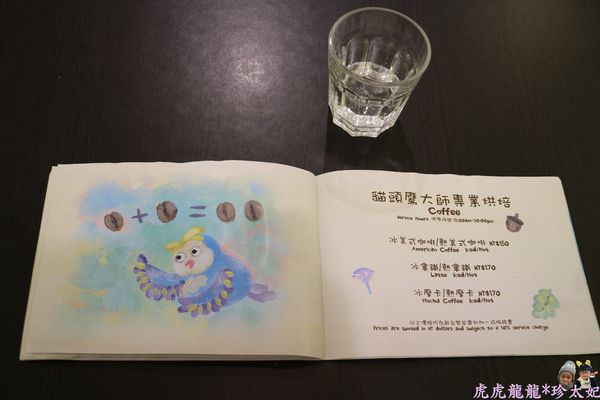 + =
貓頭鷹大師專業烘焙
Coffee
Service Hours 供應時間 11:00am-20:00pm
冰美式咖啡/熱美式咖啡 NT$150
American Coffee Iced/Hot
冰拿鐵/熱拿鐵 NT$170
Latte Iced/Hot
冰摩卡/熱摩卡 NT$170
Mocha Coffee Iced/Hot
以上價格均為新台幣並需外加一成服務費
Prices are quoted in NT dollars and subject to a 10% service charge
虎虎龍龍*珍太妃